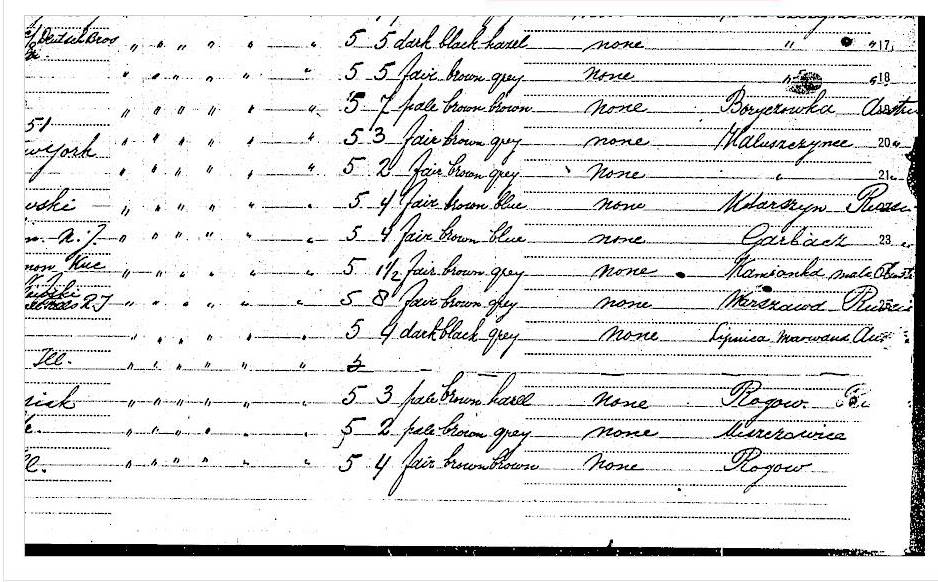 Deutsch Bros " " " " " " 5 5 dark black hazel none " " 17
" " " " " " 5 5 fair brown grey none " 18
" " " " " " 5 7 pale brown brown none
51 " " " " " " 5 3 fair brown grey none Maluszczynce 20 "
York " " " " " " 5 2 fair brown grey none " 21 "
wski " " " " " " 5 4 fair brown blue none
N.J. " " " " " " 5 4 fair brown blue none Garbacz 23 "
" " " " " " 5 1 1/2 fair brown grey none Kamionka mala
" " " " " " 5 8 fair brown grey none Warszawa
" " " " " " 5 4 dark black grey none Lipnica
Ill. " " " " " " 5 — — — —
" " " " " " 5 3 pale brown hazel none Rogow
" " " " " " 5 2 pale brown grey none
" " " " " " 5 4 fair brown brown none Rogow